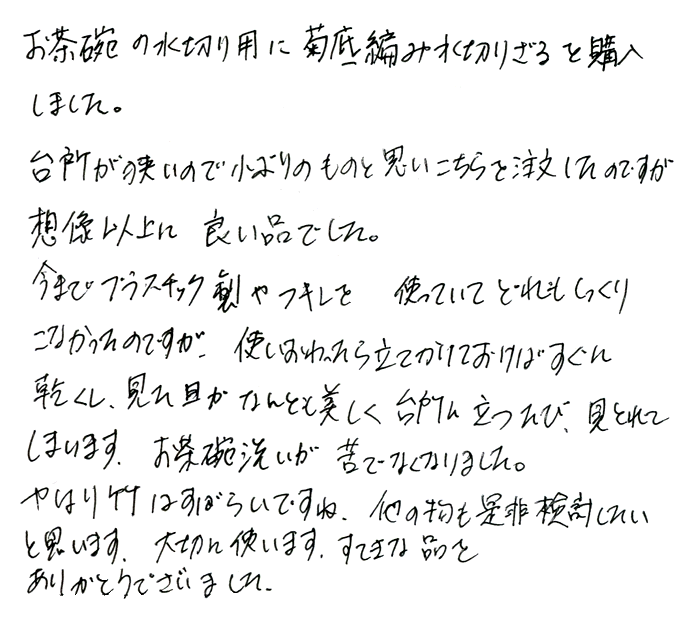 お茶碗の水切り用に菊底編み水切りざるを購入
しました。
台所が狭いので小ぶりのものと思いこちらを注文したのですが
想像以上に良い品でした。
今までプラスチック製やフキンを使っていてどれもしっくり
こなかったのですが、使いおわったら立てかけておけばすぐに
乾くし、見た目がなんとも美しく台所に立つたび、見とれて
しまいます。お茶碗洗いが苦でなくなりました。
やはり竹はすばらしいですね、他の物も是非検討したい
と思います。大切に使います。すてきな品を
ありがとうございました。